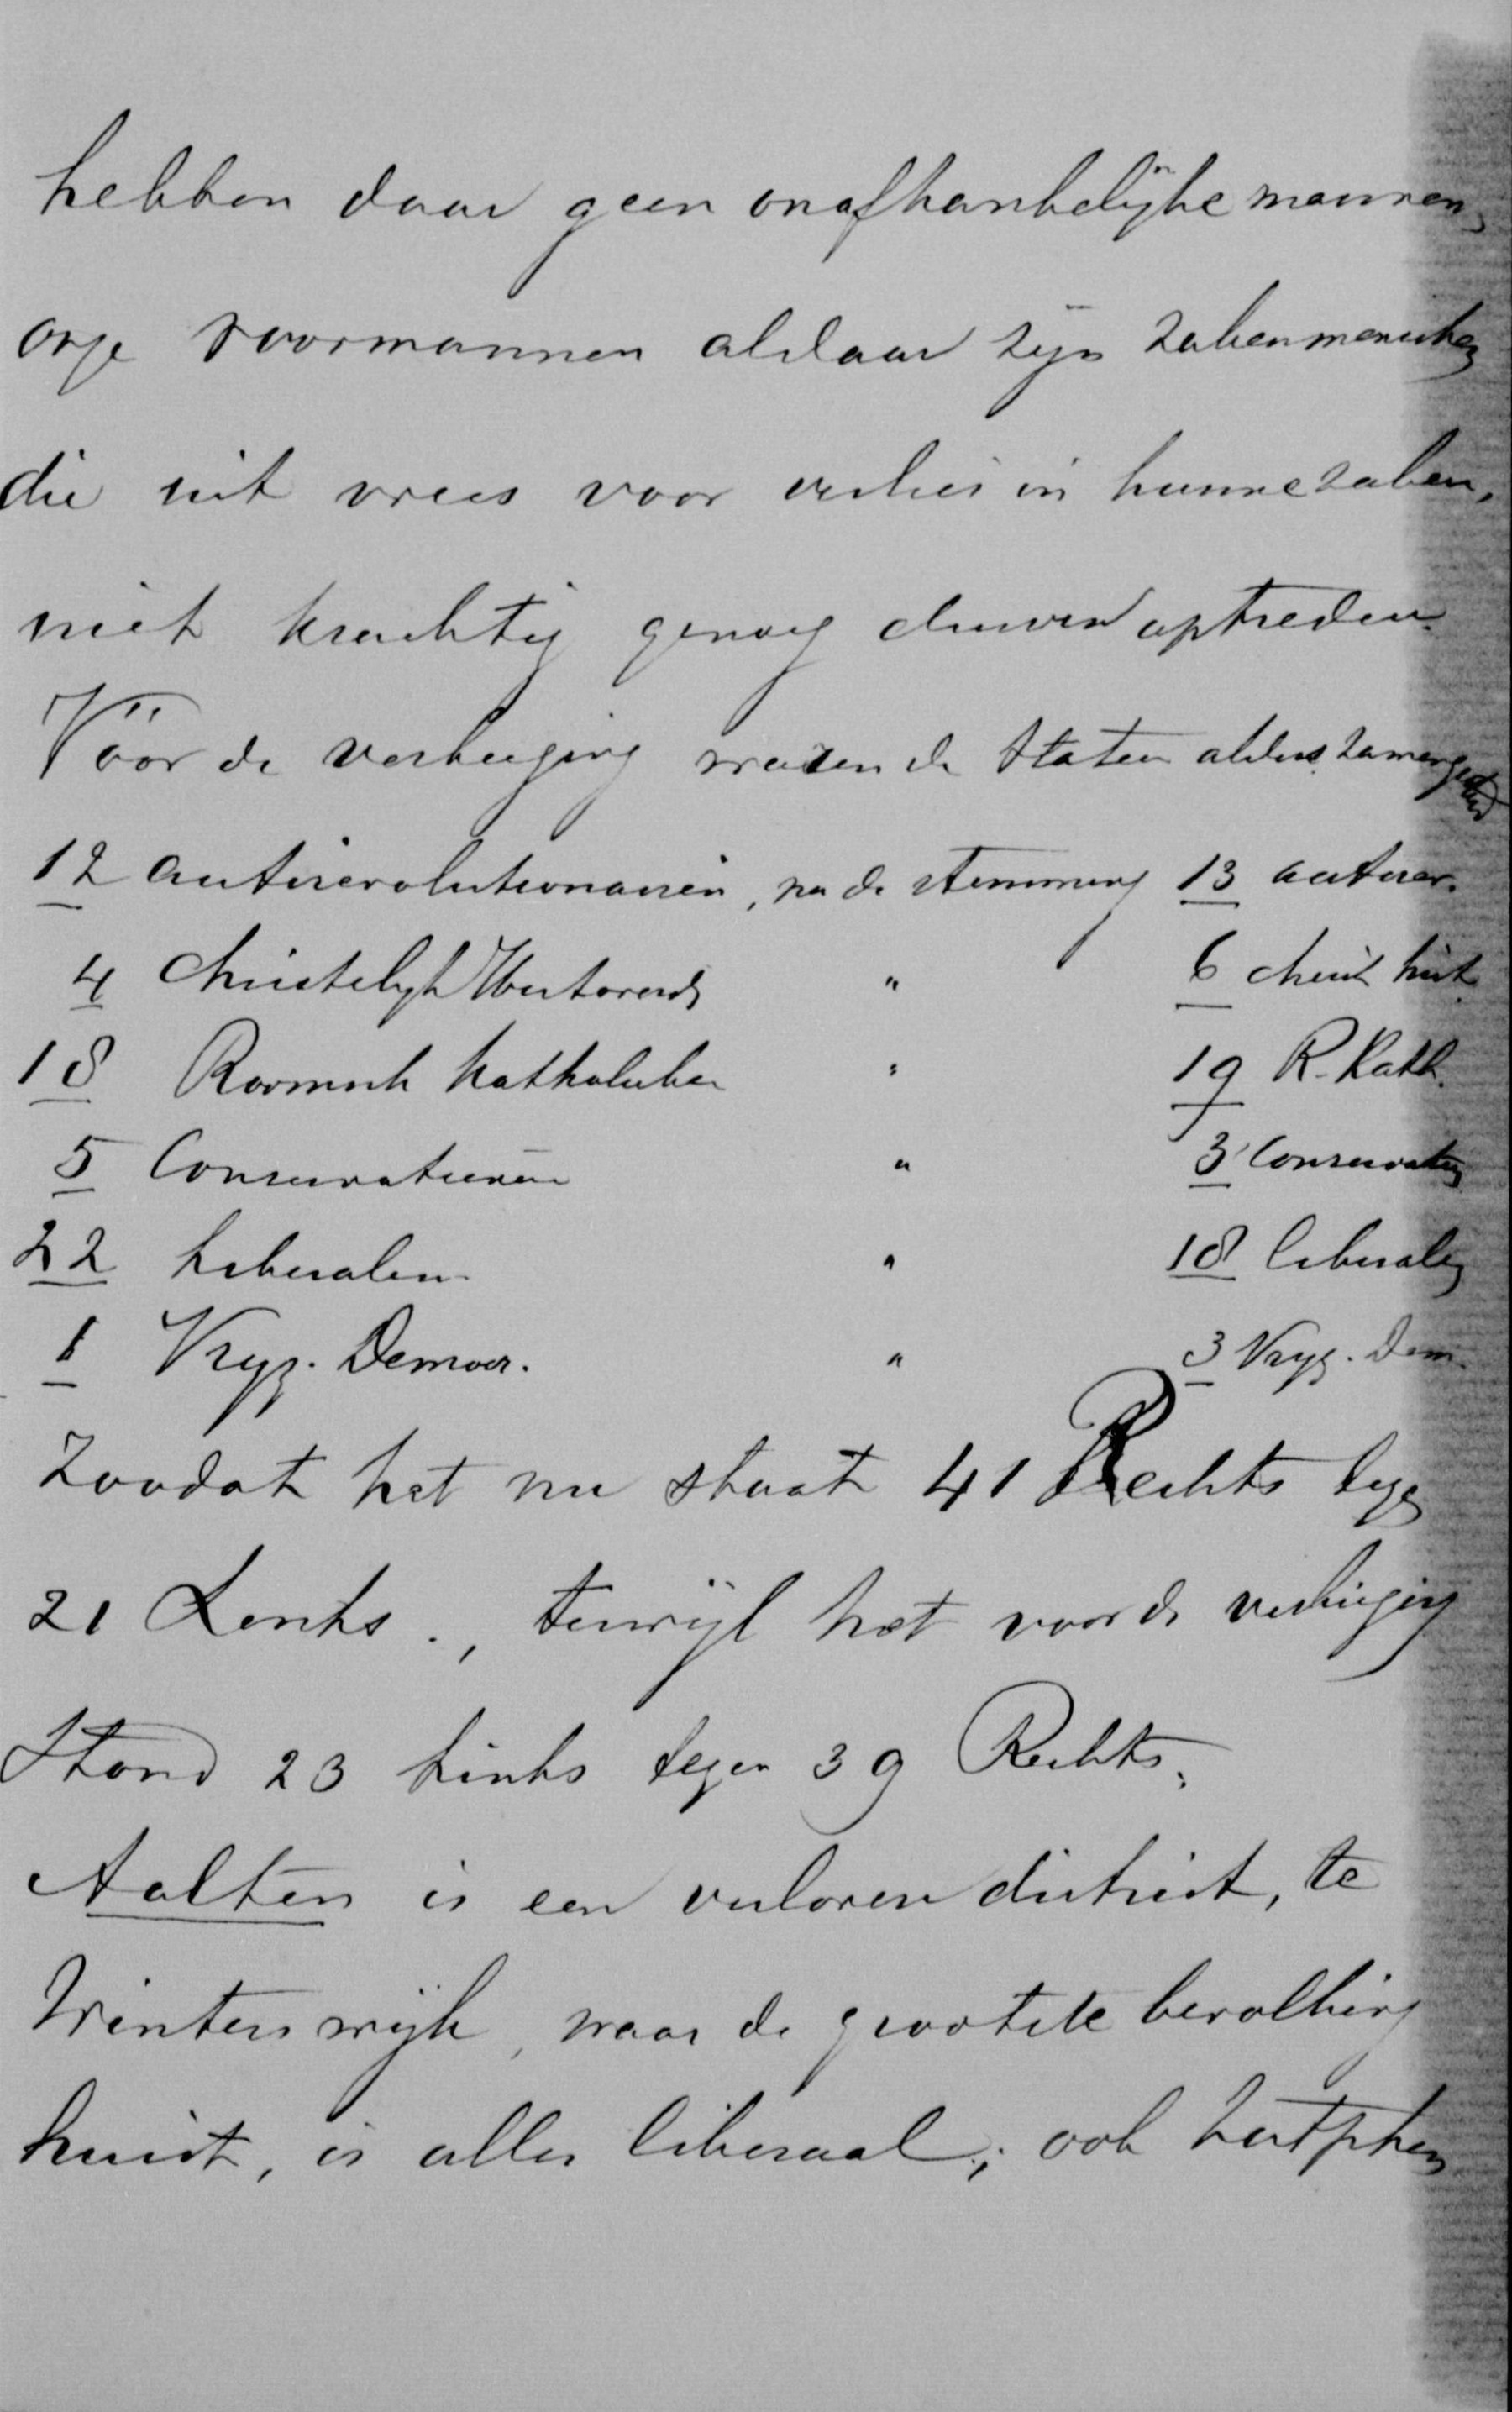 hebben daar geen onafhankelijke mannen,
onze voormannen aldaar zijn zakenmenschen
die uit vrees voor verlies in hunne zaken,
niet krachtig genoeg durven optreden.
Vóór de verkiezing waren de Staten aldus zamengesteld
12 antirevolutionairen, na de stemming 13 antirev.
4 Christelijk Historisch " 6 christ hist.
18 Roomsch Katholieken " 19 R. Kath.
5 Conservatieven " 3 Conservatieven
22 Liberalen " 18 liberalen
1 Vryz. Democr. " 3 Vryz. Dem.
Zoodat het nu staat 41 Rechts tegen
21 Links., terwijl het voor de verkiezing
Stond 23 Links tegen 39 Rechts.
Aalten is een verloren district, te
Winterswijk, waar de grootste bevolking
huist, is alles liberaal; ook Zutphen